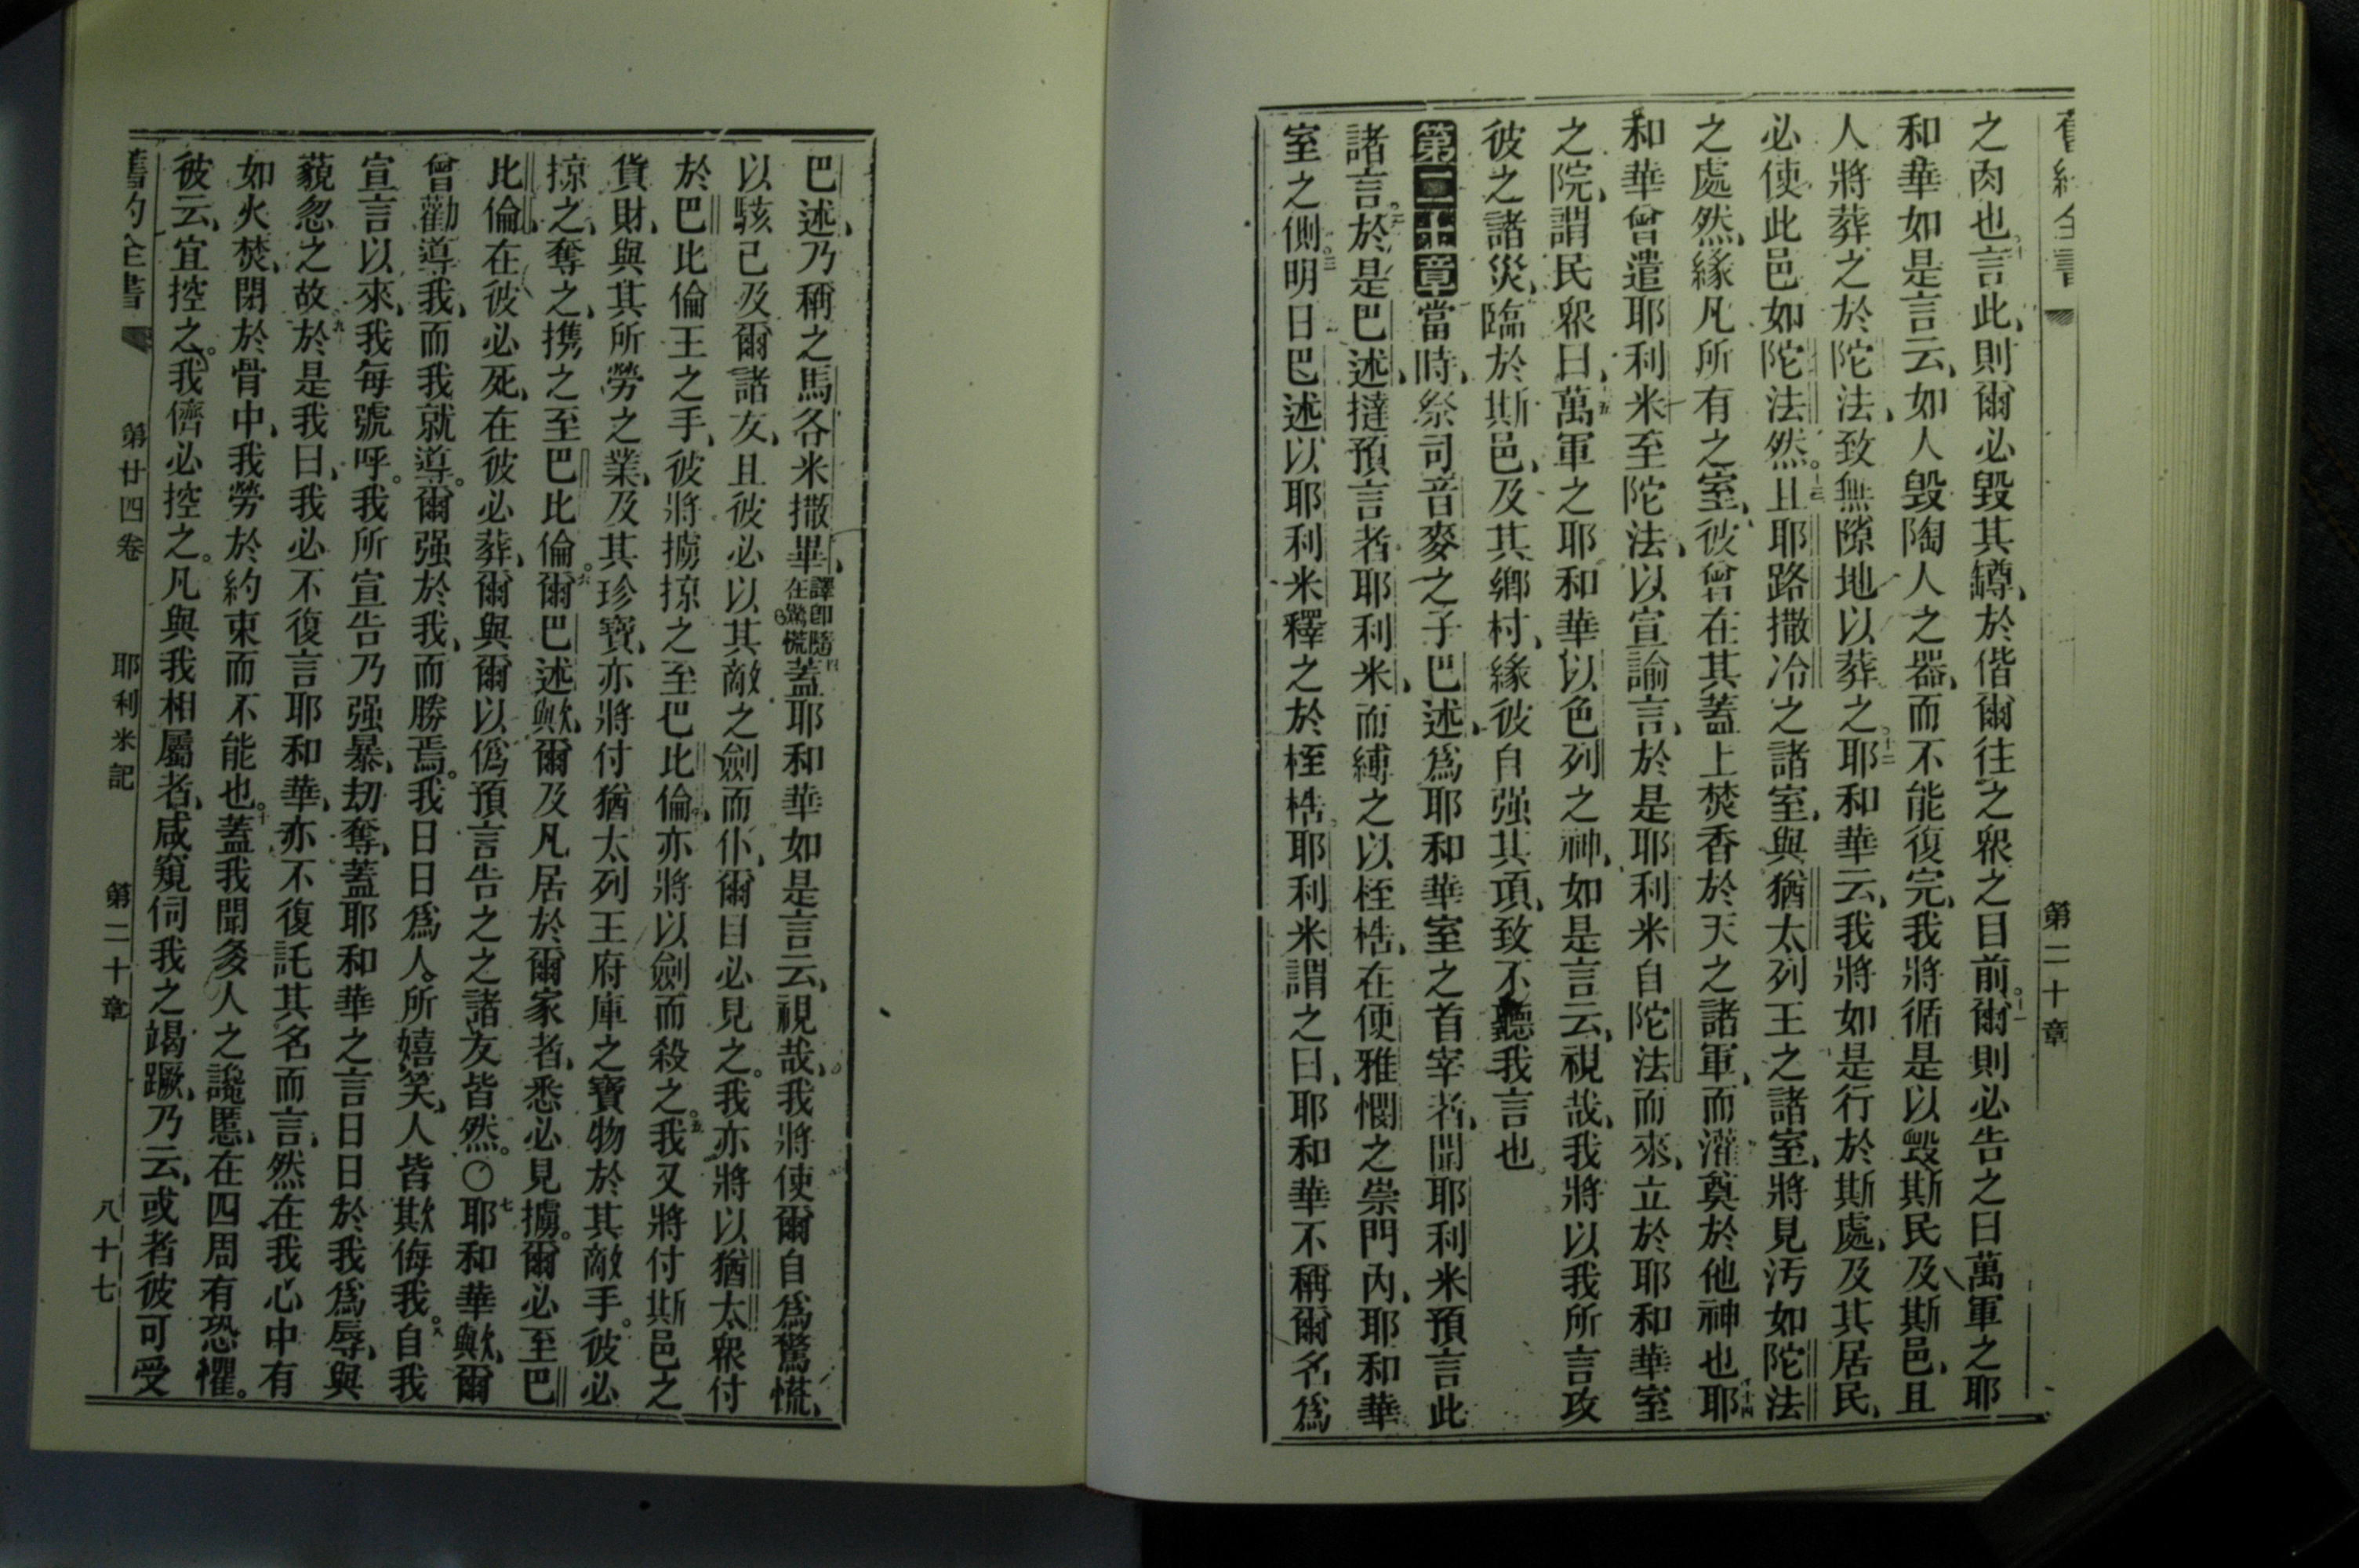 舊約全書 第二十章
之肉也。十言此、則爾必毀其罇、於偕爾往之眾之目前。十一爾則必告之曰萬軍之耶
和華如是言云、如人毀陶人之器、而不能復完、我將循是以毀斯民及斯邑、且
人將葬之於陀法、致無隙地以葬之。十二耶和華云、我將如是行於斯處、及其居民、
必使此邑如陀法然。十三且耶路撒冷之諸室、與猶太列王之諸室、將見汚如陀法
之處然、緣凡所有之室、彼曾在其蓋上焚香於天之諸軍、而灌奠於他神也十四耶
和華曾遣耶利米至陀法、以宣諭言、於是耶利米自陀法而來、立於耶和華室
之院、謂民眾曰、十五萬軍之耶和華以色列之神、如是言云、視哉、我將以我所言攻
彼之諸災、臨於斯邑、及其鄉村、緣彼自强其項、致不聽我言也。
第二十章當時、祭司音麥之子巴述、爲耶和華室之首宰者、聞耶利米預言此
諸言。二於是巴述、撻預言者耶利米、而縛之以桎梏、在便雅憫之崇門內、耶和華
室之側。三明日巴述以耶利米釋之於桎梏。耶利米謂之曰、耶和華不稱爾名爲
巴述、乃稱之馬各米撒畢、譯卽隨在驚慌四蓋耶和華如是言云、視哉、我將使爾自爲驚慌、
以駭己及爾諸友、且彼必以其敵之劍而仆、爾目必見之。我亦將以猶太眾付
於巴比倫王之手、彼將擄掠之至巴比倫、亦將以劍而殺之。五我又將付斯邑之
貨財、與其所勞之業、及其珍寶、亦將付猶太列王府庫之寶物於其敵手。彼必
掠之、奪之、携之至巴比倫。六爾巴述歟、爾及凡居於爾家者、悉必見擄。爾必至巴
比倫、在彼必死、在彼必葬、爾與爾以僞預言告之之諸友皆然。〇七耶和華歟、爾
曾勸導我、而我就導。爾强於我、而勝焉。我日日爲人所嬉笑、人皆欺侮我。八自我
宣言以來、我每號呼。我所宣告乃强暴、刧奪、蓋耶和華之言日日於我爲辱、與
藐忽之故。九於是我曰、我必不復言耶和華、亦不復託其名而言、然在我心中有
如火焚、閉於骨中、我勞於約束而不能也。十蓋我聞多人之讒慝、在四周有恐懼。
彼云、宜控之。我儕必控之。凡與我相屬者、咸窺伺我之竭蹶、乃云、或者彼可受
舊約全書 第廿四卷 耶利米記 第二十章 八十七